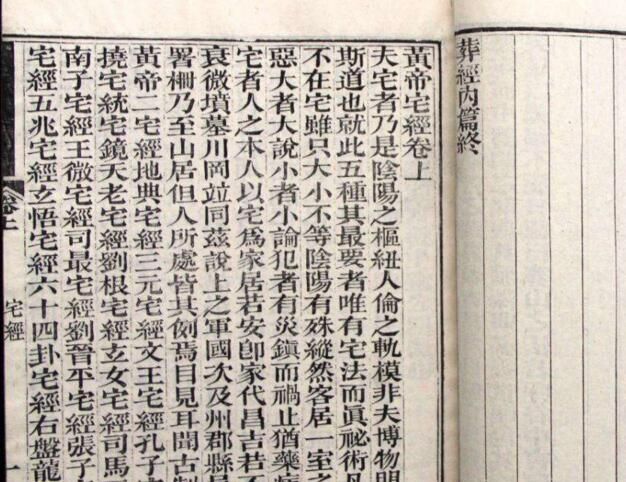 葬經內篇終
黃帝宅經卷上
夫宅者乃是陰陽之樞紐人倫之軌模非夫博物明
斯道也就此五種其最要者唯有宅法而眞祕術凡
不在宅雖只大小不等陰陽有殊縱然客居一室之
惡大者大說小者小論犯者有災鎮而禍止猶藥病
宅者人之本人以宅爲家居若安卽家代昌吉若不
衰微墳墓川岡竝同茲說上之軍國次及州郡縣邑
署柵乃至山居但人所處皆其例焉目見耳聞古制
黃帝二宅經地典宅經三元宅經文王宅經孔子宅
撓宅統宅鏡天老宅經劉根宅經玄女宅經司馬
南子宅經王微宅經司最宅經劉晉平宅經張子
宅經五兆宅經玄悟宅經六十四卦宅經右盤龍
卷上
宅經
一